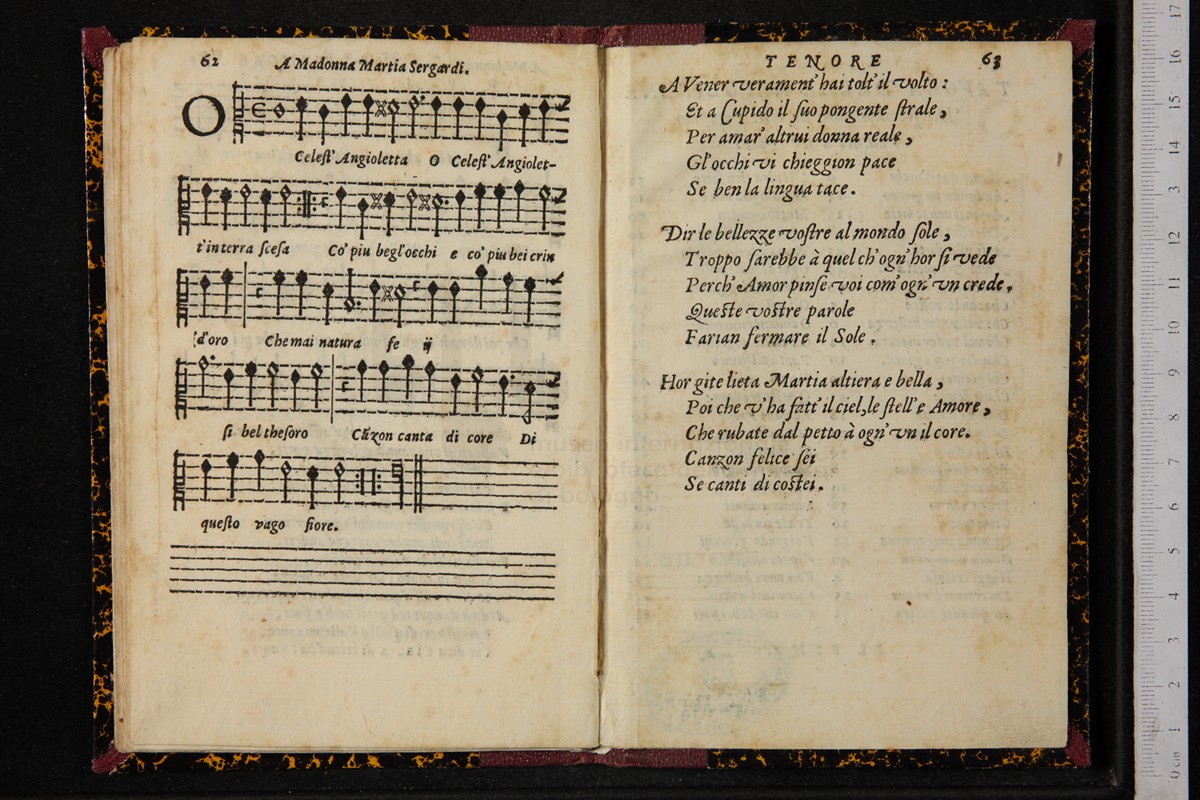 62
A Madonna Martia Sergardi.
O
Celest' Angioletta O Celest' Angiolet-
t'in terra scesa Co' piu begl'occhi e co' piu bei crin
d'oro Che mai natura fe ij
si bel thesoro Cãzon canta di core Di
questo vago fiore.
TENORE 63
A Vener verament' hai tolt' il volto :
Et a Cupido il suo pongente strale,
Per amar' altrui donna reale,
Gl'occhi vi chieggion pace
Se ben la lingua tace.
Dir le bellezze vostre al mondo sole,
Troppo sarebbe à quel ch'ogn' hor si vede
Perch' Amor pinse voi com' ogn' vn crede.
Queste vostre parole
Farian fermare il Sole.
Hor gite lieta Martia altiera e bella,
Poi che v'ha fatt' il ciel, le stell' e Amore,
Che rubate dal petto à ogn' vn il core.
Canzon felice sei
Se canti di costei.
0 cm 1 2 3 4 5 6 7 8 9 10 11 12 13 14 15 16 17